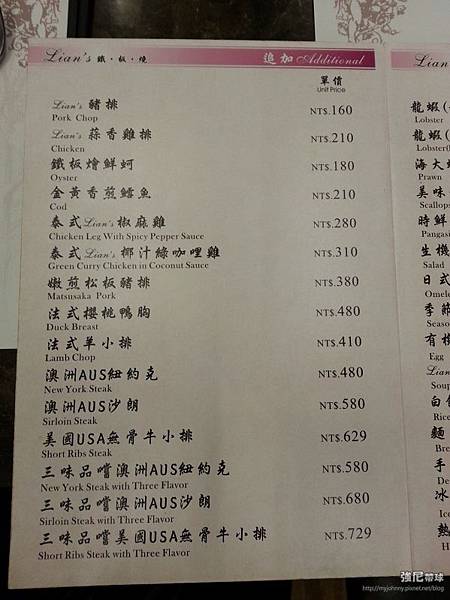 Lian's 鐵·板·燒
追加 Additional
單價
Unit Price
Lian's 豬排 NT$.160
Pork Chop
Lian's 蒜香雞排 NT$.210
Chicken
鐵板燴鮮蚵 NT$.180
Oyster
金黃香煎鱈魚 NT$.210
Cod
泰式Lian's椒麻雞 NT$.280
Chicken Leg With Spicy Pepper Sauce
泰式Lian's椰汁綠咖哩雞 NT$.310
Green Curry Chicken in Coconut Sauce
嫩煎松板豬排 NT$.380
Matsusaka Pork
法式櫻桃鴨胸 NT$.480
Duck Breast
法式羊小排 NT$.410
Lamb Chop
澳洲AUS紐約克 NT$.480
New York Steak
澳洲AUS沙朗 NT$.580
Sirloin Steak
美國USA無骨牛小排 NT$.629
Short Ribs Steak
三味品嚐澳洲AUS紐約克 NT$.580
New York Steak with Three Flavor
三味品嚐澳洲AUS沙朗 NT$.680
Sirloin Steak with Three Flavor
三味品嚐美國USA無骨牛小排 NT$.729
Short Ribs Steak with Three Flavor
Lian
龍蝦(
Lobster
龍蝦(
Lobster(
海大蝦
Prawn
美味
Scallops
時鮮
Pangasi
生機
Salad
日式
Omele
季節
Seaso
有機
Egg
Lian
Soup
白飯
Rice
麵
Bre
手
De
冰
Ice
熱
H
強尼帶球
http://myjohnny.pixnet.net/blog